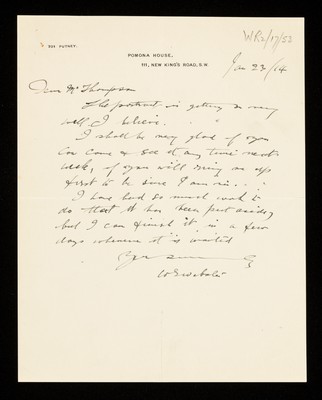 WR2/17/52
701 PUTNEY.
POMONA HOUSE,
111, NEW KING'S ROAD, S.W.
Jan 23/14
Dear Mr Thompson
The portrait is getting on very
well I believe.
I shall be very glad if you
can come & see it any time next
week, if you will ring me up
first to be sure I am in.
I have had so much work to
do that it has been put aside,
but I can finish it in a few
days whenever it is wanted